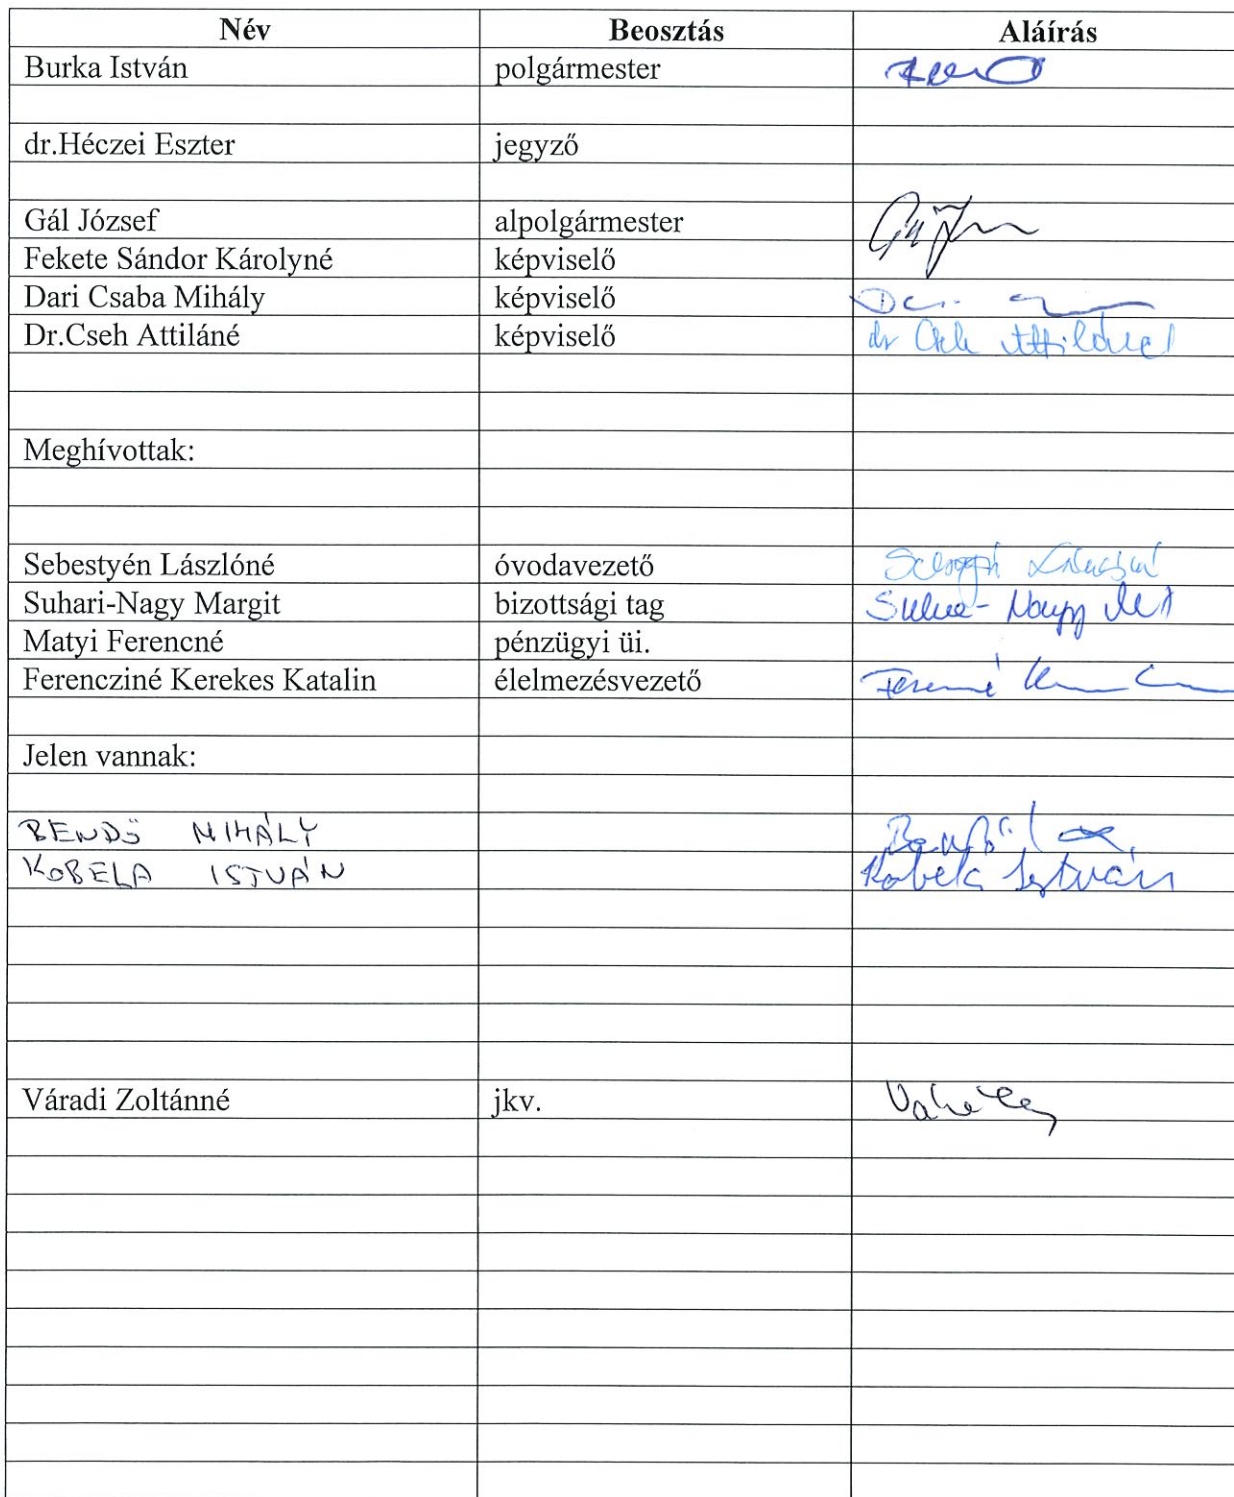 Név Beosztás Aláírás
Burka István polgármester
dr.Héczei Eszter jegyző
Gál József alpolgármester
Fekete Sándor Károlyné képviselő
Dari Csaba Mihály képviselő
Dr.Cseh Attiláné képviselő dr Cseh Attiláné
Meghívottak:
Sebestyén Lászlóné óvodavezető
Suhari-Nagy Margit bizottsági tag
Matyi Ferencné pénzügyi üi.
Ferencziné Kerekes Katalin élelmezésvezető
Jelen vannak:
BENDŐ MIHÁLY
KOBELA ISTVÁN Kobela István
Váradi Zoltánné jkv.